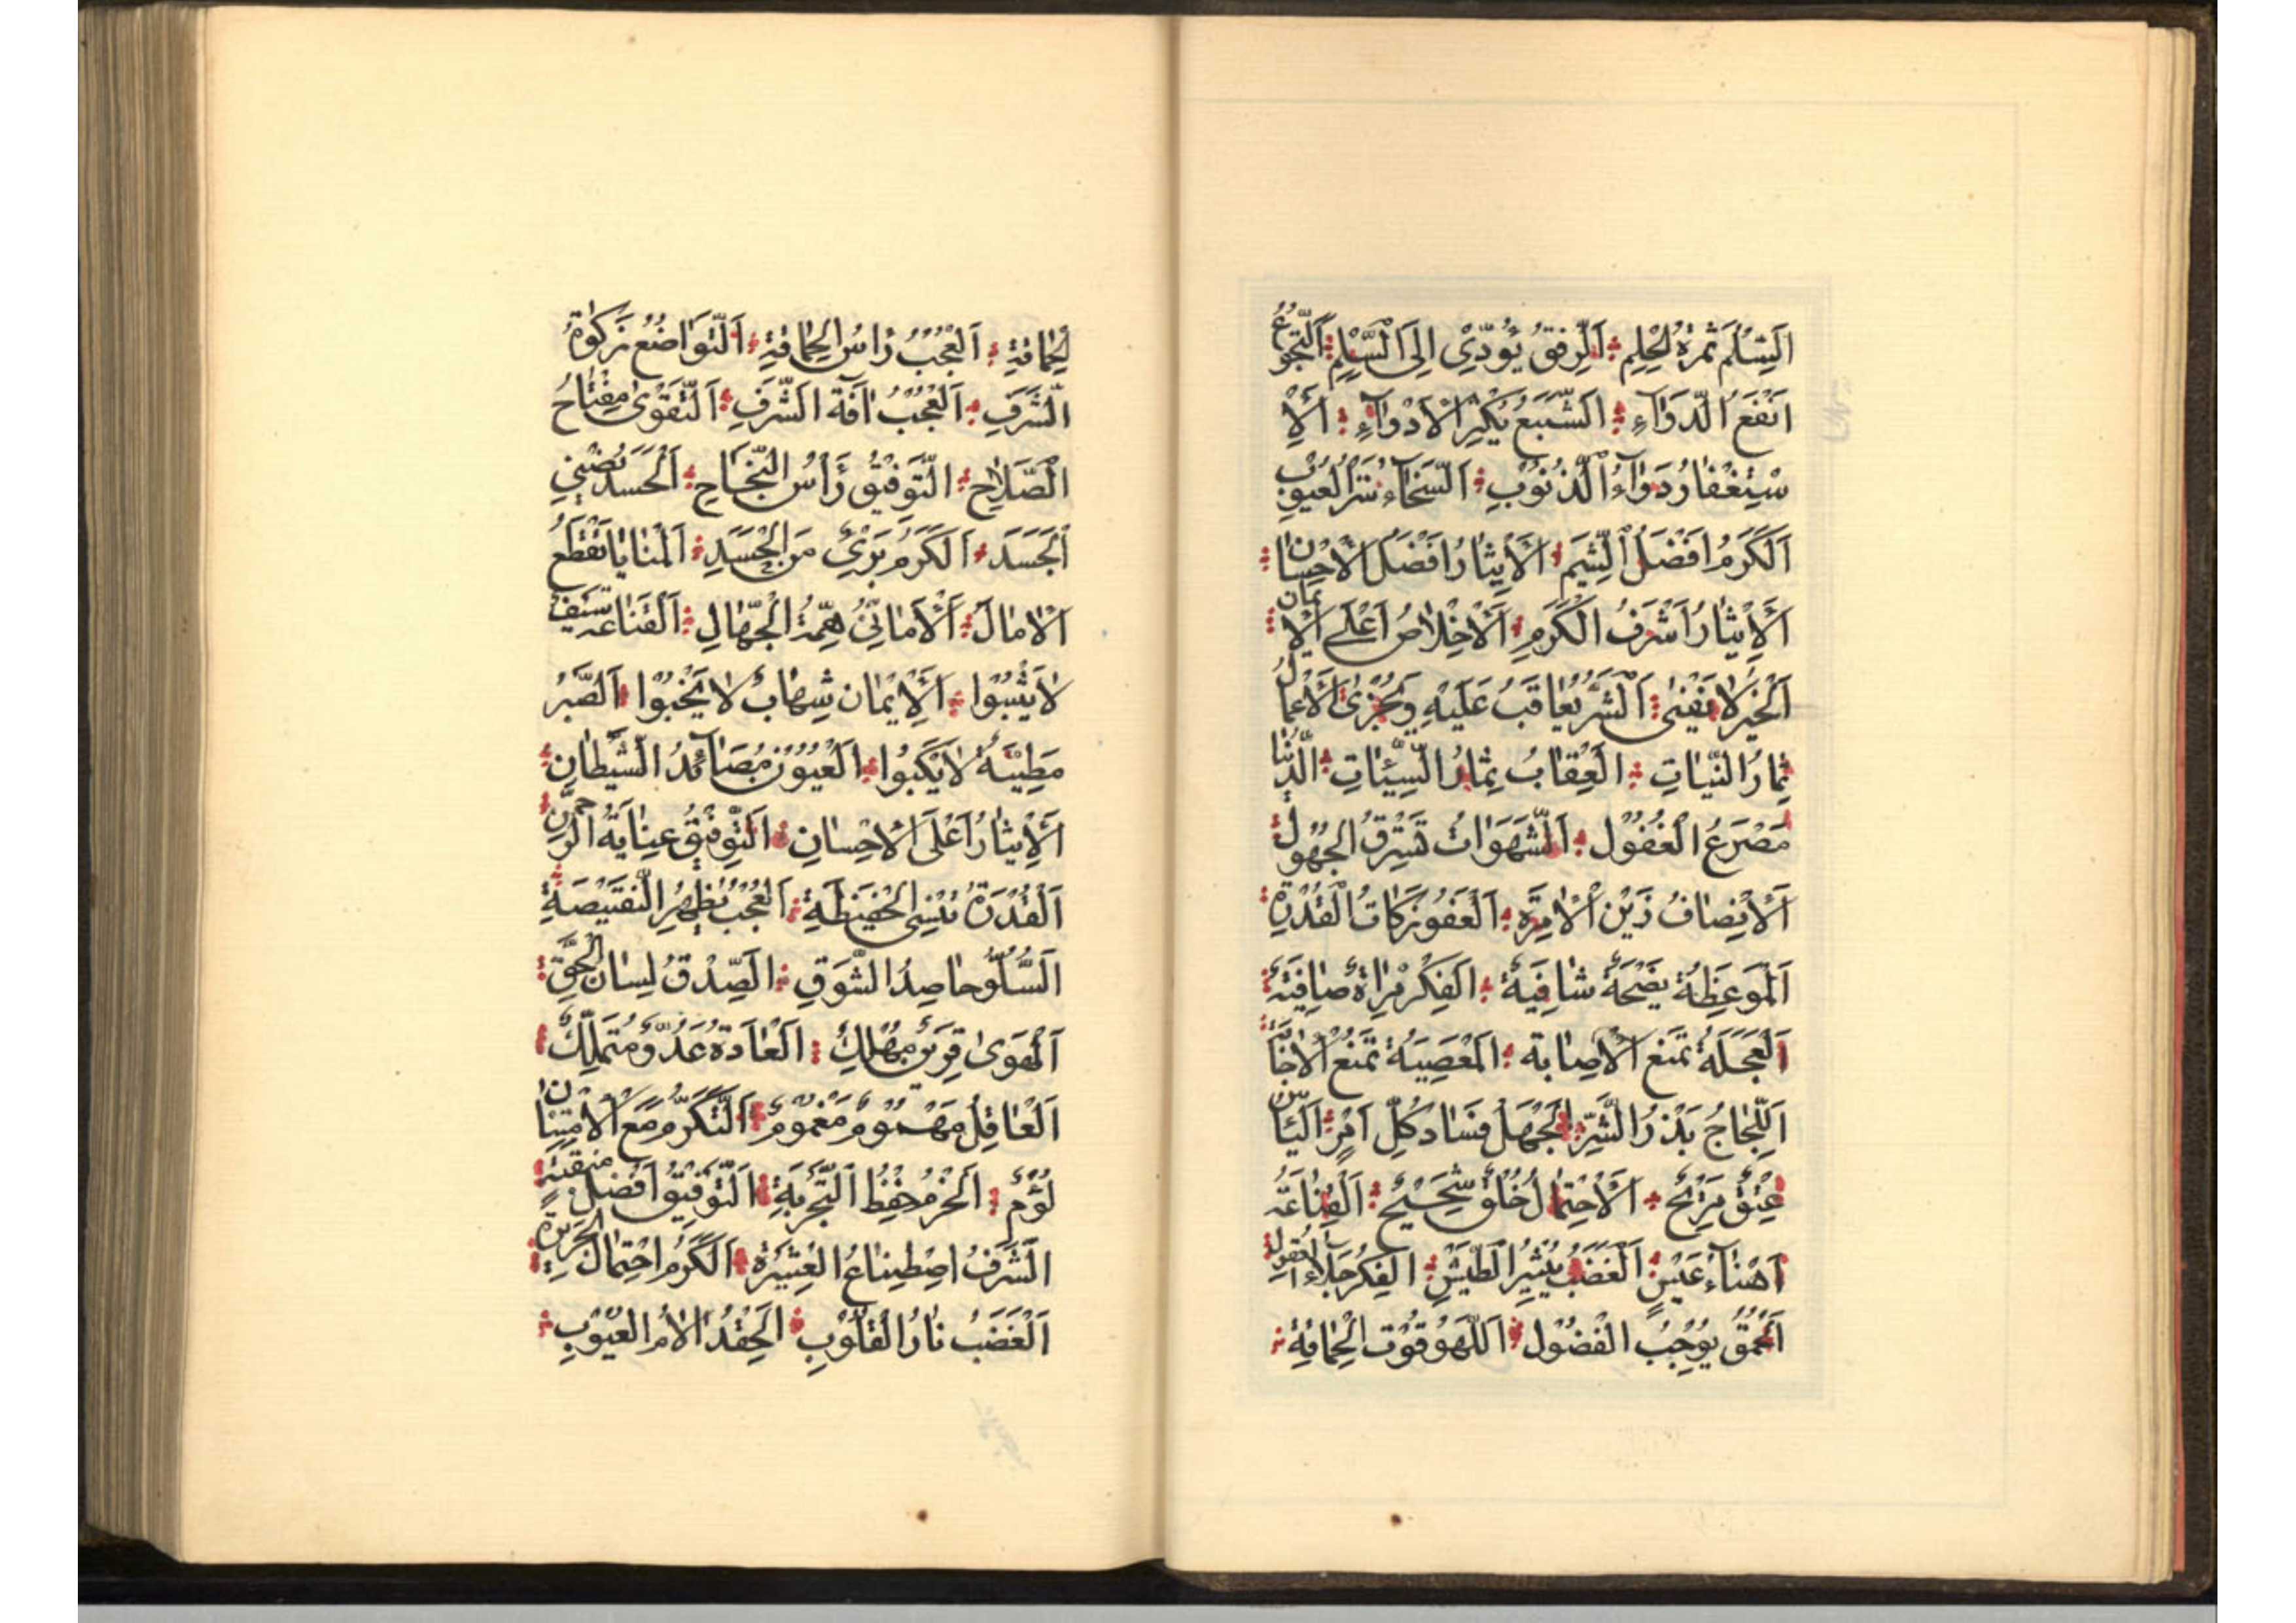 اَلسِّلْمُ ثَمَرَةُ الْحِلْمِ اَلرِّفْقُ يُؤَدِّيْ اِلَى السِّلْمِ اَلتَّجَوُّعُ
اَنْفَعُ الدَّوَآءِ اَلشَّبَعُ يُكَثِّرُ الْاَدْوَآءَ اَلْاِ
سْتِغْفَارُ دَوَآءُ الذُّنُوْبِ اَلسَّخَآءُ سَتْرُ الْعُيُوْبِ
اَلْكَرَمُ اَفْضَلُ الشِّيَمِ اَلْاِيْثَارُ اَفْضَلُ الْاِحْسَانِ
اَلْاِيْثَارُ اَشْرَفُ الْكَرَمِ اَلْاِخْلَاصُ اَعْلَى الْاِيْمَانِ
اَلْخَيْرُ لَا يَفْنٰى اَلشَّرُّ يُعَاقَبُ عَلَيْهِ وَيُجْزٰى اَلْاَعْمَالُ
ثِمَارُ النِّيَّاتِ اَلْعِقَابُ ثِمَارُ السَّيِّئَاتِ اَلدُّنْيَا
مَصْرَعُ الْغُفُوْلِ اَلشَّهَوَاتُ تَسْتَرِقُ الْجَهُوْلَ
اَلْاِنْصَافُ زَيْنُ الْاِمْرَةِ اَلْعَفْوُ زَكَاتُ الْقُدْرَةِ
اَلْمَوْعِظَةُ نَصِيْحَةٌ شَافِيَةٌ اَلْفِكْرُ مِرْاٰةٌ صَافِيَةٌ
اَلْعَجَلَةُ تَمْنَعُ الْاِصَابَةَ اَلْمَعْصِيَةُ تَمْنَعُ الْاِجَابَةَ
اَللِّجَاجُ بَذْرُ الشَّرِّ اَلْجَهْلُ فَسَادُ كُلِّ اَمْرٍ اَلْيَاْسُ
عِتْقٌ مُرِيْحٌ اَلْاِحْتِمَالُ خُلْقٌ سَجِيْحٌ اَلْقَنَاعَةُ
اَهْنَاءُ عَيْشٍ اَلْغَضَبُ يُثِيْرُ الطَّيْشَ اَلْفِكْرُ جَلَاءُ الْعُقُوْلِ
اَلْحُمْقُ يُوْجِبُ الْفُضُوْلَ اَللَّهْوُ قُوْتُ الْحَمَاقَةِ
الْحَمَاقَةِ اَلْعُجْبُ رَاْسُ الْحَمَاقَةِ اَلتَّوَاضُعُ زَكٰوةُ
الشَّرَفِ اَلْعُجْبُ اٰفَةُ الشَّرَفِ اَلتَّقْوٰى مِفْتَاحُ
الصَّلَاحِ اَلتَّوْفِيْقُ رَاْسُ النَّجَاحِ اَلْحَسَدُ يُضْنِي
الْجَسَدَ اَلْكَرَمُ بَرِيْءٌ مِنَ الْحَسَدِ اَلْمَنَايَا تَقْطَعُ
الْاٰمَالَ اَلْاَمَانِيُّ هِمَّةُ الْجُهَّالِ اَلْقَنَاعَةُ سَيْفٌ
لَا يَنْبُوْا اَلْاِيْمَانُ شِهَابٌ لَا يَخْبُوْا اَلصَّبْرُ
مَطِيَّةٌ لَا يَكْبُوْا اَلْعُيُوْنُ مَصَآئِدُ الشَّيْطَانِ
اَلْاِيْثَارُ اَعْلَى الْاِحْسَانِ اَلتَّوْفِيْقُ عِنَايَةُ الرَّحْمٰنِ
اَلْقُدْرَةُ تُنْسِي الْحَفِيْظَةَ اَلْعُجْبُ يُظْهِرُ النَّقِيْصَةَ
اَلسُّلُوُّ حَاصِدُ الشَّوْقِ اَلصِّدْقُ لِسَانُ الْحَقِّ
اَلْهَوٰى قَرِيْنٌ مُهْلِكٌ اَلْعَادَةُ عَدُوٌّ مُتَمَلِّكٌ
اَلْعَاقِلُ مَهْمُوْمٌ مَغْمُوْمٌ اَلتَّكَرُّمُ مَعَ الْاِمْتِنَانِ
لُؤْمٌ اَلْحَزْمُ حِفْظُ التَّجْرِبَةِ اَلتَّوْفِيْقُ اَفْضَلُ مَنْقَبَةٍ
اَلشَّرَفُ اصْطِنَاعُ الْعَشِيْرَةِ اَلْكَرَمُ احْتِمَالُ الْجَرِيْرَةِ
اَلْغَضَبُ نَارُ الْقُلُوْبِ اَلْحِقْدُ اَلْاَمُ الْعُيُوْبِ